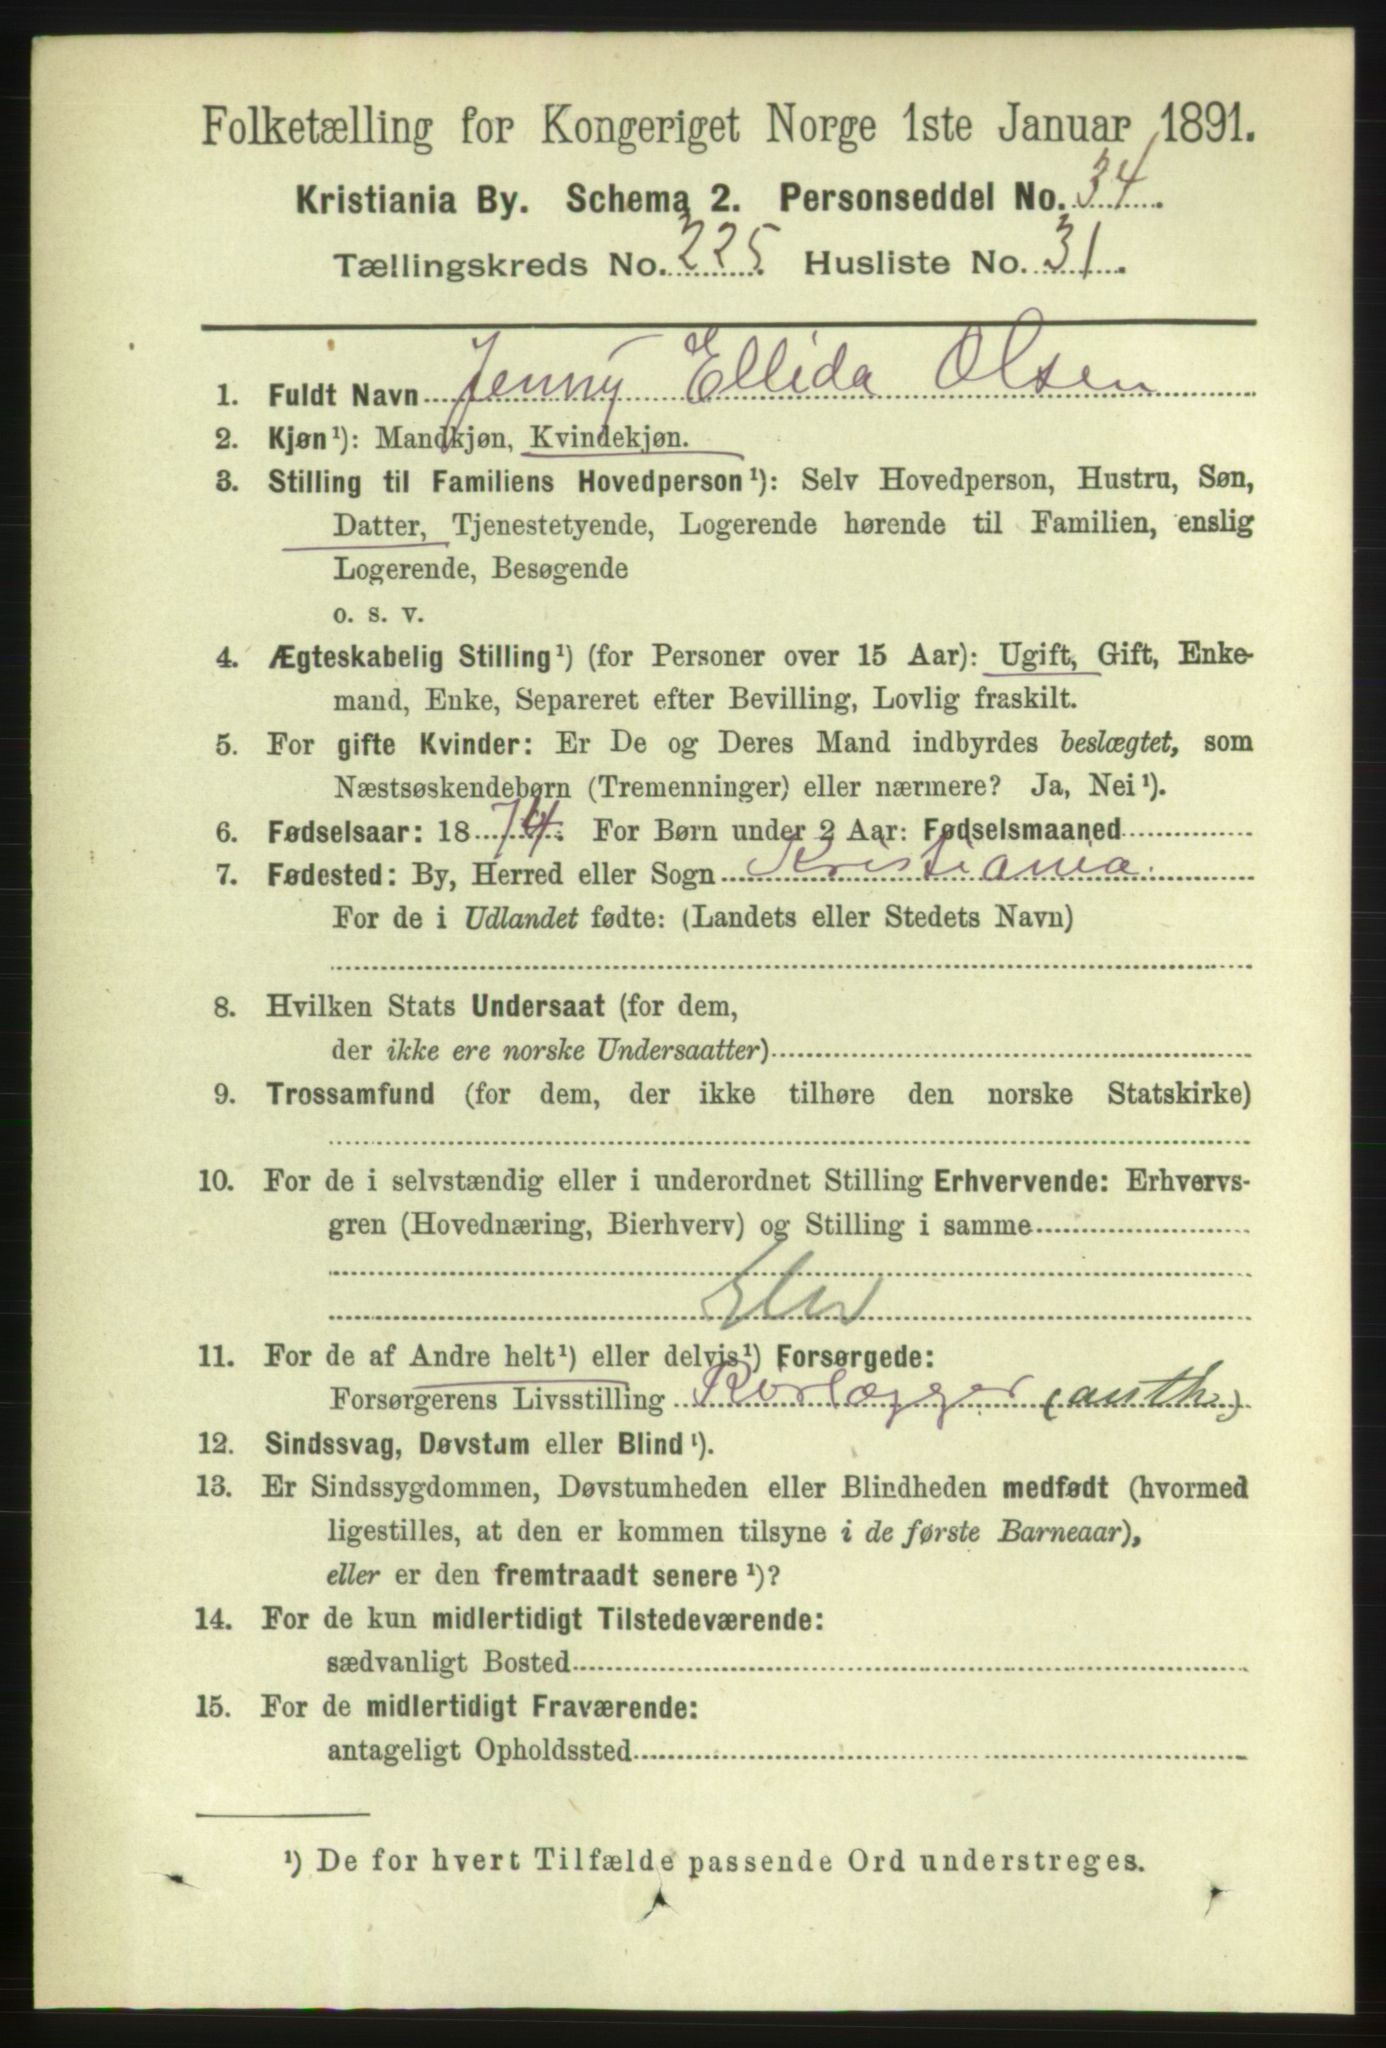 Folketælling for Kongeriget Norge 1ste Januar 1891.
Kristiania By. Schema 2. Personseddel No. 34.
Tællingskreds No. 225. Husliste No. 31.
1. Fuldt Navn Jenny Ellida Olsen
2. Kjøn¹): Mandkjøn, Kvindekjøn.
3. Stilling til Familiens Hovedperson¹): Selv Hovedperson, Hustru, Søn,
Datter, Tjenestetyende, Logerende hørende til Familien, enslig
Logerende, Besøgende
o. s. v.
4. Ægteskabelig Stilling¹) (for Personer over 15 Aar): Ugift, Gift, Enke-
mand, Enke, Separeret efter Bevilling, Lovlig fraskilt.
5. For gifte Kvinder: Er De og Deres Mand indbyrdes beslægtet, som
Næstsøskendebørn (Tremenninger) eller nærmere? Ja, Nei¹).
6. Fødselsaar: 1874. For Børn under 2 Aar: Fødselsmaaned
7. Fødested: By, Herred eller Sogn Kristiania.
For de i Udlandet fødte: (Landets eller Stedets Navn)
8. Hvilken Stats Undersaat (for dem,
der ikke ere norske Undersaatter)
9. Trossamfund (for dem, der ikke tilhøre den norske Statskirke)
10. For de i selvstændig eller i underordnet Stilling Erhvervende: Erhvervs-
gren (Hovednæring, Bierhverv) og Stilling i samme
Elev
11. For de af Andre helt¹) eller delvis¹) Forsørgede:
Forsørgerens Livsstilling Rørlægger (auth.)
12. Sindssvag, Døvstum eller Blind¹).
13. Er Sindssygdommen, Døvstumheden eller Blindheden medfødt (hvormed
ligestilles, at den er kommen tilsyne i de første Barneaar),
eller er den fremtraadt senere¹)?
14. For de kun midlertidigt Tilstedeværende:
sædvanligt Bosted
15. For de midlertidigt Fraværende:
antageligt Opholdssted
¹) De for hvert Tilfælde passende Ord understreges.